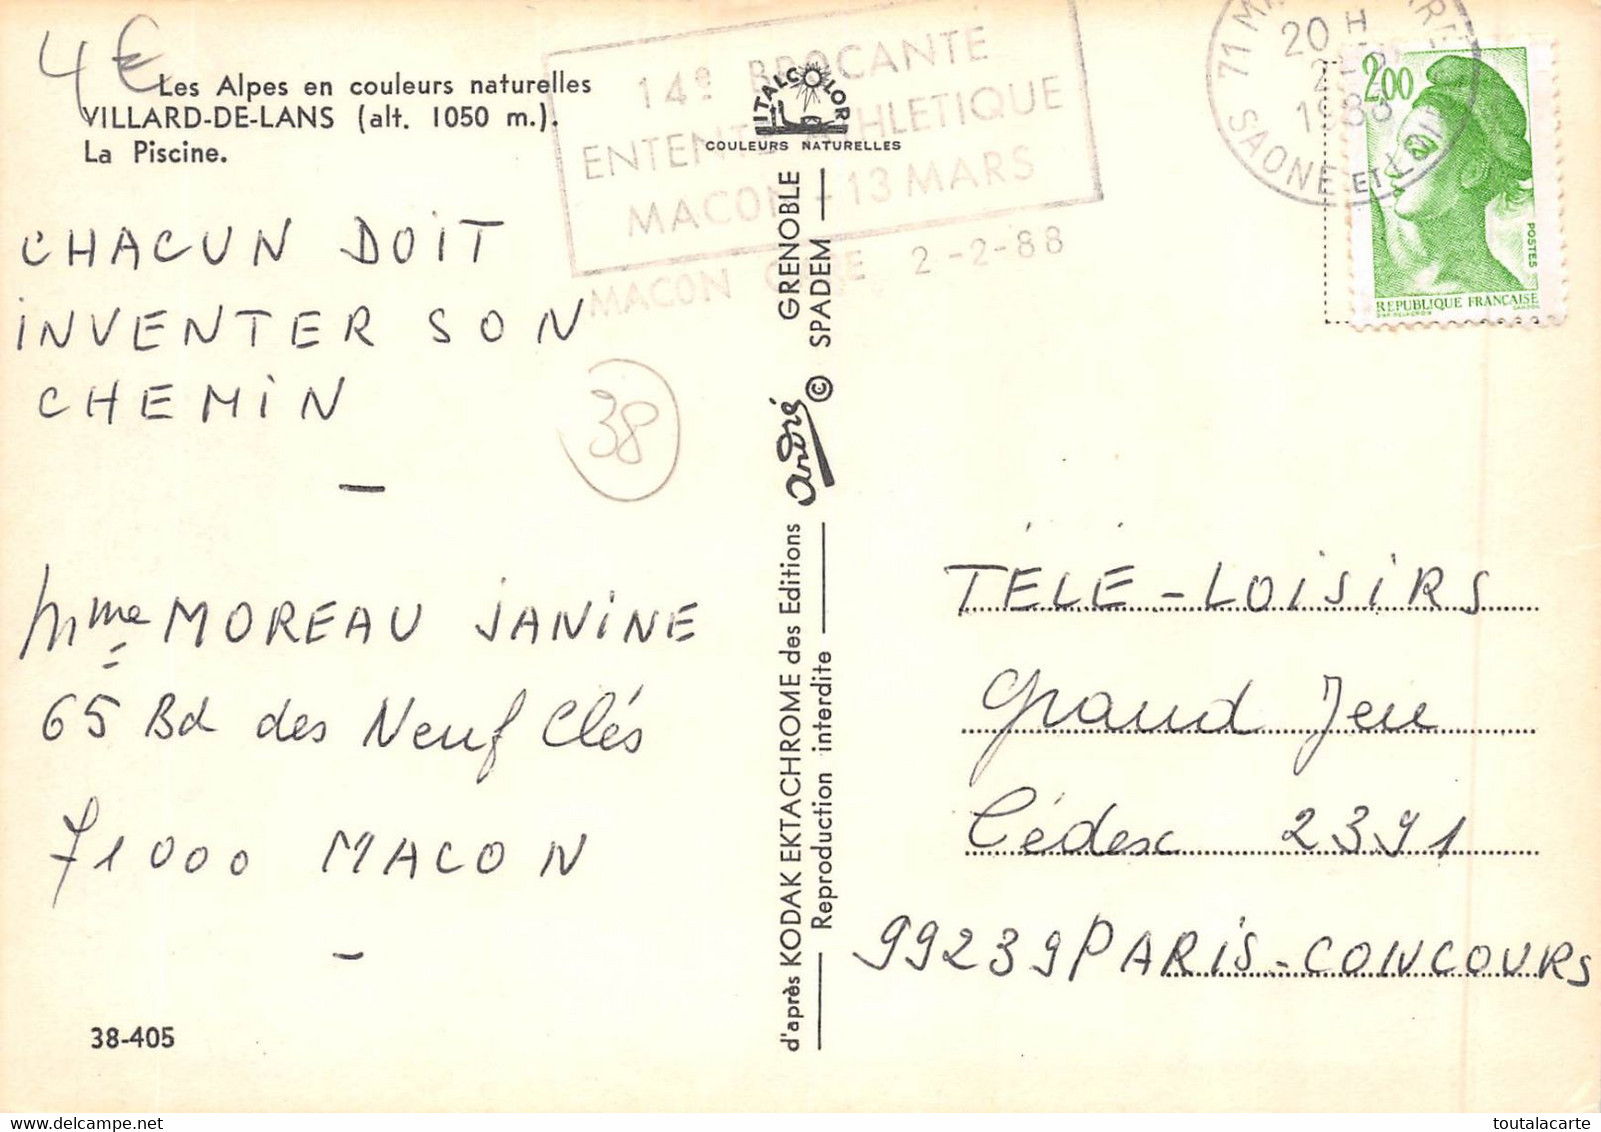 4€
Les Alpes en couleurs naturelles
VILLARD-DE-LANS (alt. 1050 m.).
La Piscine.
CHACUN DOIT
INVENTER SON
CHEMIN
38
Mme MOREAU JANINE
65 Bd des Neuf Clés
71000 MACON
38-405
14e BROCANTE
ENTENTE ATHLETIQUE
MACON - 13 MARS
MACON 2-2-88
ITALCOLOR
COULEURS NATURELLES
d'après KODAK EKTACHROME des Editions André GRENOBLE
Reproduction interdite © SPADEM
71
20 H
1988
SAONE ET LOIRE
2,00
POSTES
REPUBLIQUE FRANÇAISE
TÉLÉ-LOISIRS
Grand Jeu
Cédex 2391
99239 PARIS-CONCOURS
toutalacarte.delcampe.net